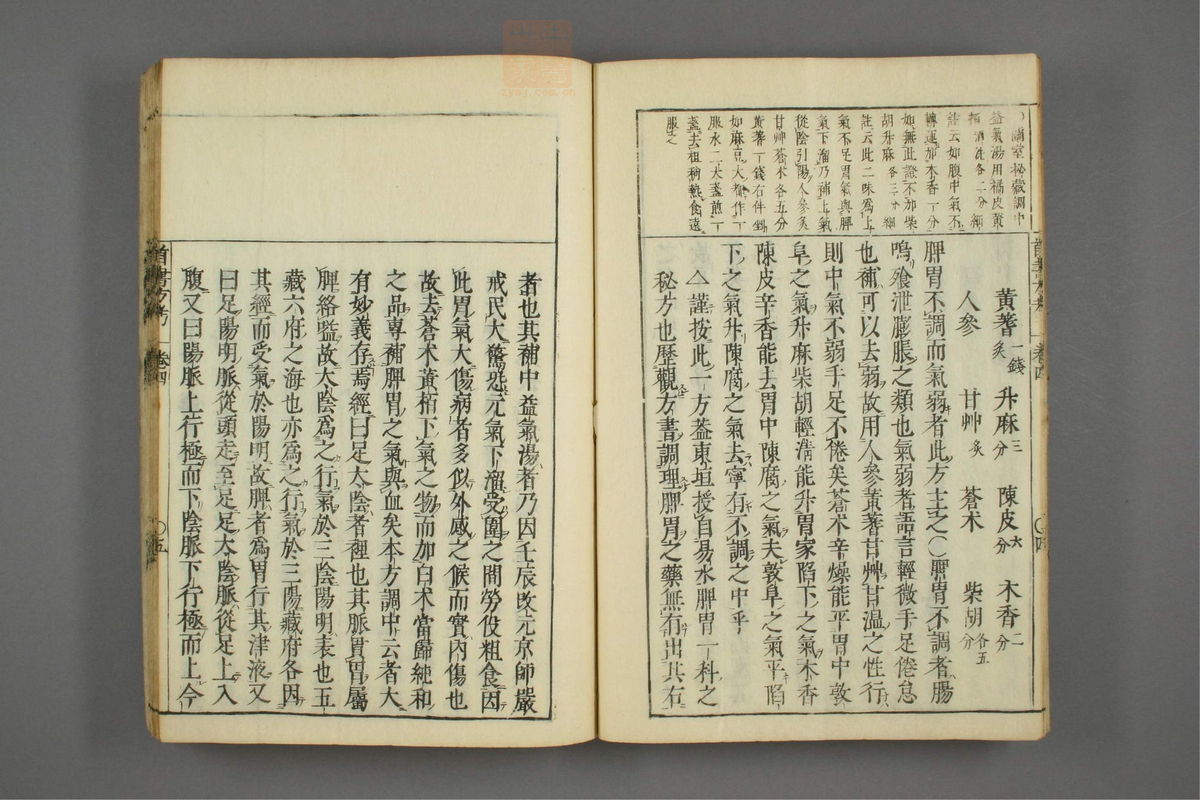 蘭室秘藏調中
益氣湯用橘皮黃
栢酒洗各二分細
註云如腹中氣不
轉運加木香一分
如無此證不加柴
胡升麻各三分細
註云此二味爲上
氣不足胃氣與脾
氣下溜乃補上氣
從陰引陽人參炙
甘艸蒼朮各五分
黃蓍一錢右件剉
如麻豆大都作一
服水二大盞煎一
盞去粗稍熱食遠
服之
黃蓍炙一錢 升麻三分 陳皮六分 木香二分
人參 甘艸炙 蒼朮 柴胡各五分
脾胃不調而氣弱者此方主之○脾胃不調者腸
鳴飱泄膨脹之類也氣弱者語言輕微手足倦怠
也補可以去弱故用人參黃蓍甘艸甘溫之性行
則中氣不弱手足不倦矣蒼朮辛燥能平胃中敦
阜之氣升麻柴胡輕清能升胃家陷下之氣木香
陳皮辛香能去胃中陳腐之氣夫敦阜之氣平陷
下之氣升陳腐之氣去寧有不調之中乎
△謹按此一方蓋東垣授自易水脾胃一科之
秘方也歷觀方書調理脾胃之藥無有出其右
首書方考 卷四 ○四
者也其補中益氣湯者乃因壬辰改元京師嚴
戒民大驚恐元氣下溜受圍之間勞役粗食因
此胃氣大傷病者多似外感之候而實內傷也
故去蒼朮黃栢下氣之物而加白朮當歸純和
之品專補脾胃之氣與血矣本方調中云者大
有妙義存焉經曰足太陰者裡也其脈貫胃屬
脾絡嗌故太陰爲之行氣於三陰陽明表也五
藏六府之海也亦爲之行氣於三陽藏府各因
其經而受氣於陽明故脾者爲胃行其津液又
曰足陽明脈從頭走至足足太陰脈從足上入
腹又曰陽脈上行極而下陰脈下行極而上今
首書方考 卷四 ○五
zysj.com.cn